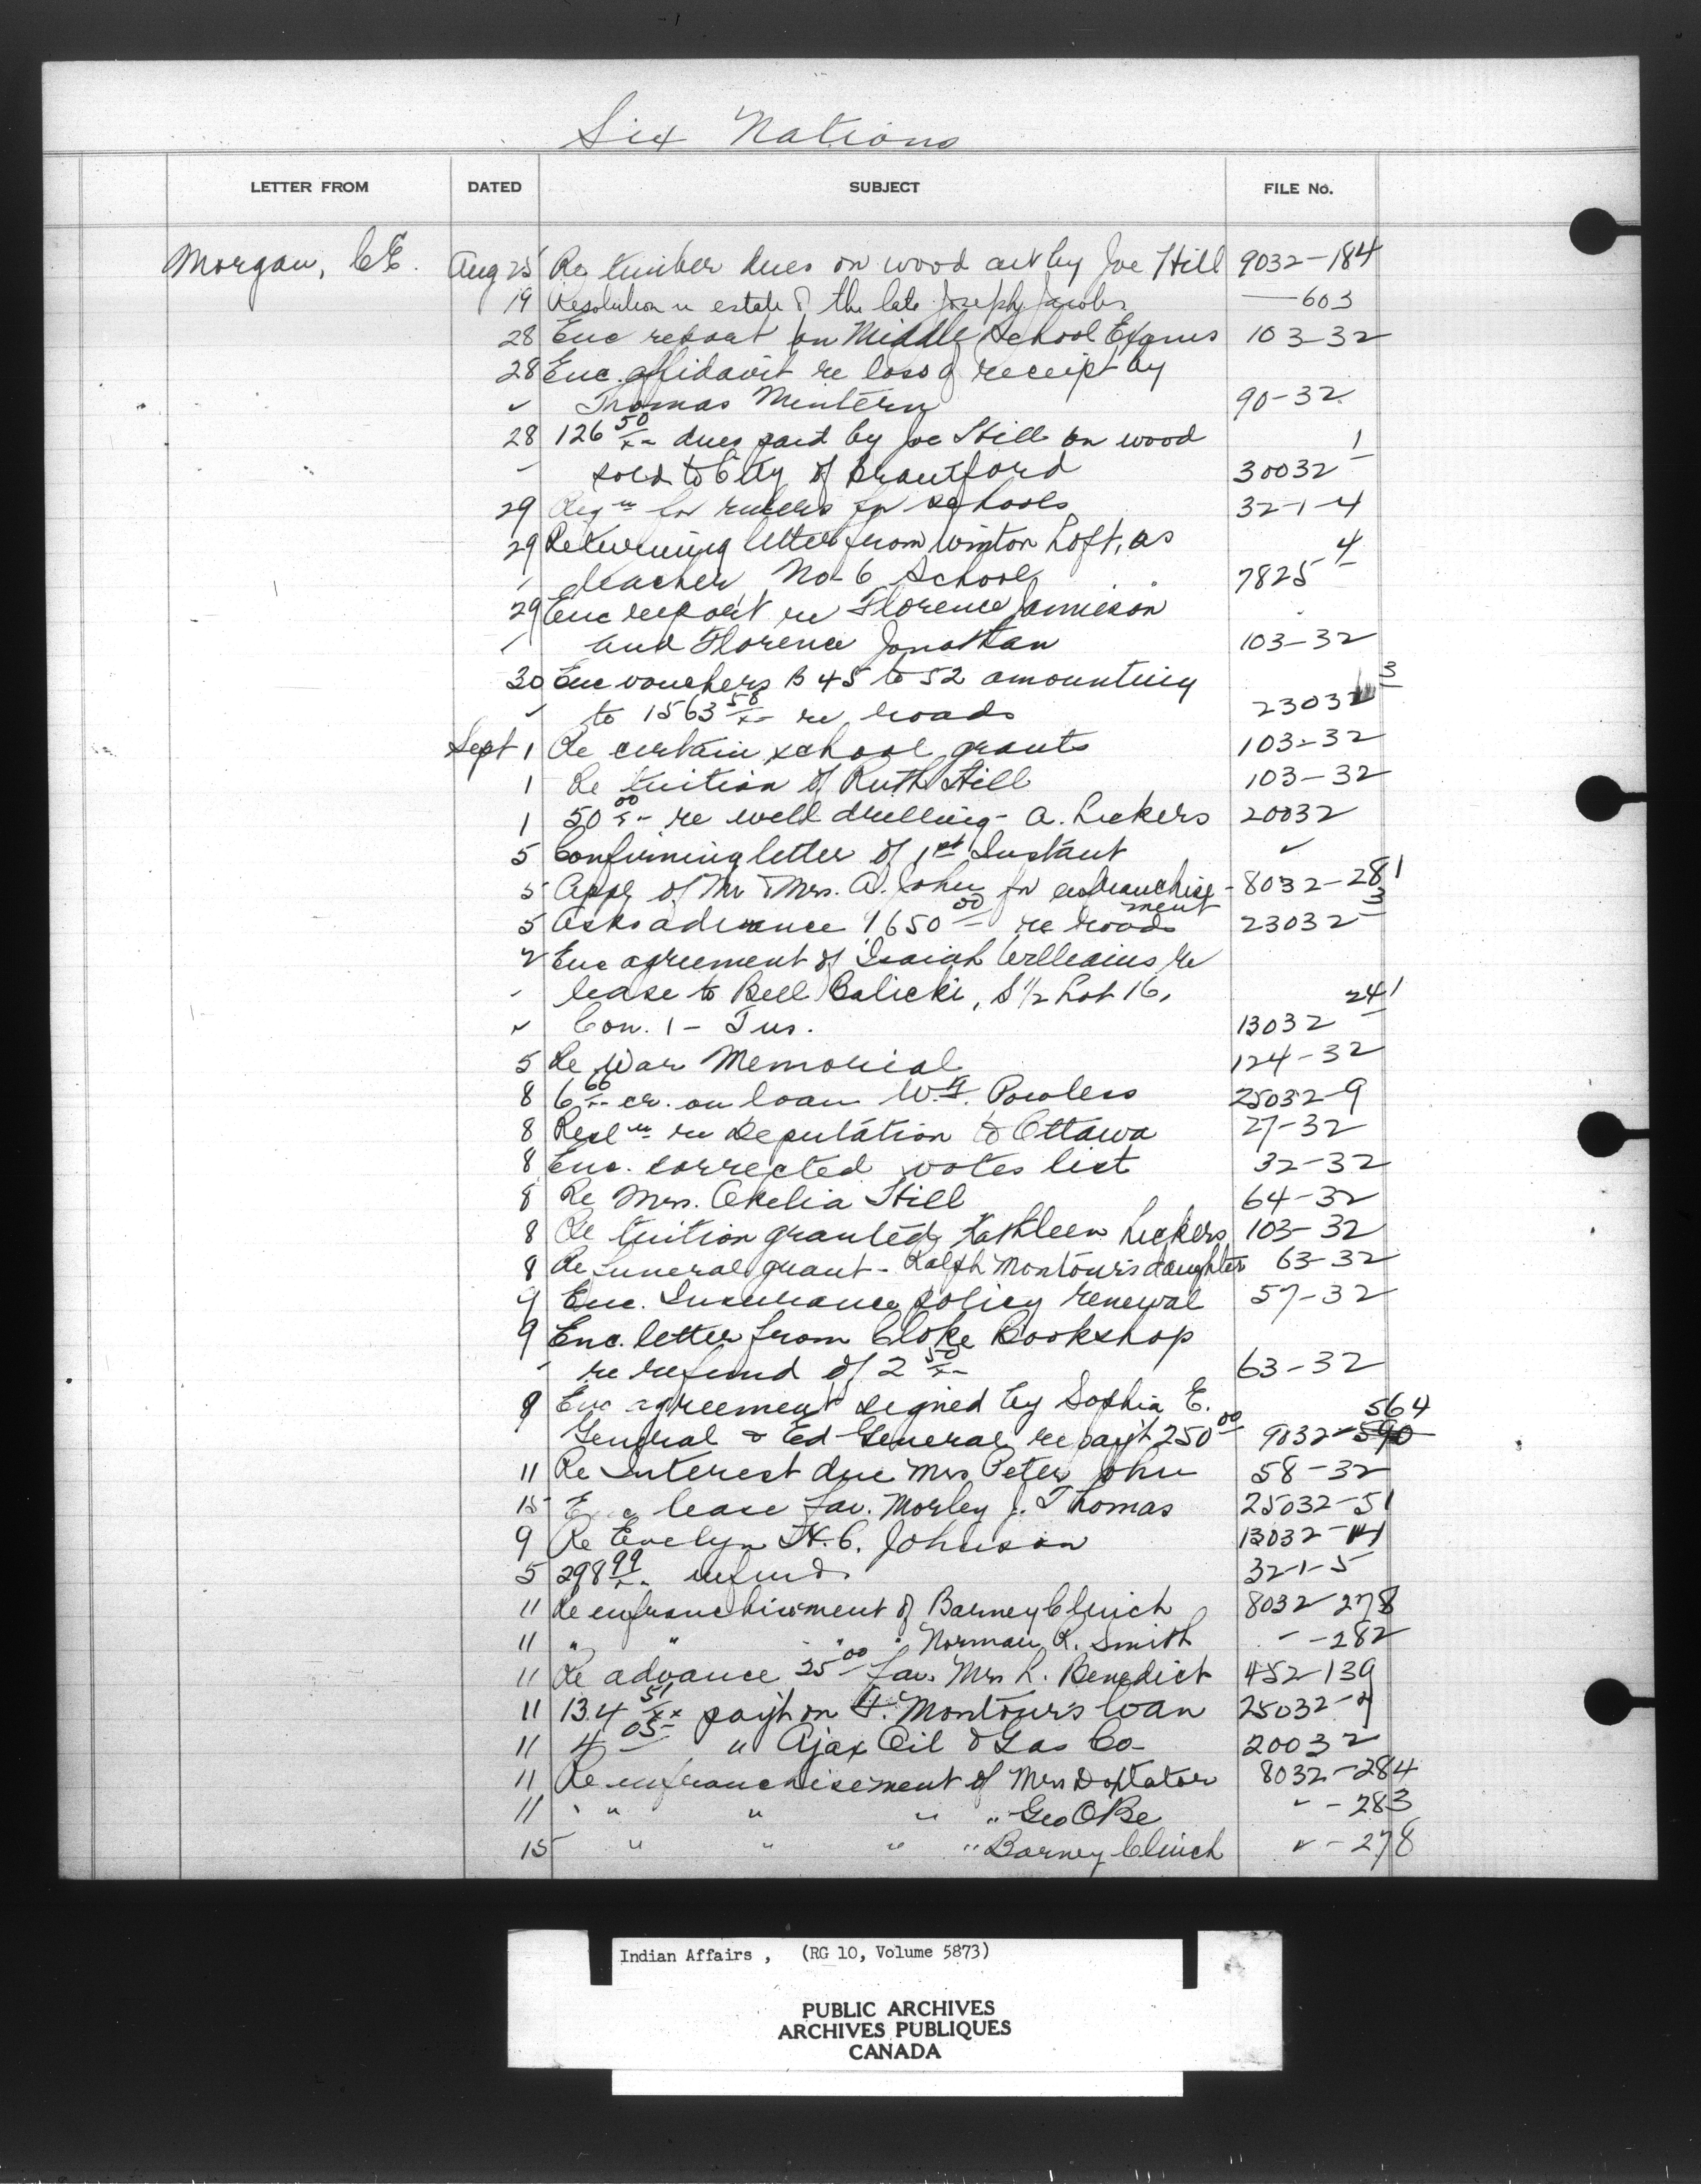 Six Nations
LETTER FROM DATED SUBJECT FILE No.
Morgan, C.E. Aug 25 Re timber dues on wood cut by Joe Hill 9032-184
19 Resolution re estate of the late Joseph Jacobs — 603
28 Enc report on Middle School Exams 103-32
28 Enc. affidavit re loss of receipt by
✓ Thomas Mintern 90-32
28 126 50/xx dues paid by Joe Hill on wood
" sold to City of Brantford 30032-1
29 Reqn for rulers for schools 32-1-4
29 Returning letter from Winton Loft, as
" teacher No 6 School 7825-4
29 Enc report re Florence Jamieson
" and Florence Jonathan 103-32
30 Enc vouchers B 45 to 52 amounting
" to 1563 58/xx re roads 23032-3
Sept 1 Re certain school grants 103-32
1 Re tuition of Ruth Hill 103-32
1 50 00/xx re well drilling - A. Lickers 20032
5 Confirming letter of 1st Instant ✓
5 Appl of Mr & Mrs. A. John for enfranchise- 8032-281
ment
5 Asks advance 1650 00 re roads 23032-3
2 Enc agreement of Isaiah Williams re
" lease to Bill Balicki, S 1/2 Lot 16,
" Con. 1 - Tus. 13032-241
5 Re War Memorial 124-32
8 6 66/xx cr. on loan W.J. Powless 25032-9
8 Resln re Deputation to Ottawa 27-32
8 Enc. corrected votes list 32-32
8 Re Mrs. Okelia Hill 64-32
8 Re tuition granted Kathleen Lickers 103-32
8 Re funeral grant - Ralph Montour's daughter 63-32
9 Enc. Insurance policy renewal 57-32
9 Enc. letter from Cloke Bookshop
" re refund of 2 50/xx 63-32
9 Enc agreement signed by Sophia E. 564
General & Ed General re pay't 250 00 9032-590
11 Re Interest due Mrs Peter John 58-32
15 Enc lease fav. Morley J. Thomas 25032-51
9 Re Evelyn H.C. Johnson 13032-141
5 298 99/xx refund. 32-1-5
11 Re enfranchisement of Barney Clinch 8032-278
11 " " " " Norman R. Smith " -282
11 Re advance 25 00 fav. Mrs L. Benedict 452-139
11 134 51/xx pay't on F. Montour's loan 25032-9
11 4 05 " Ajax Oil & Gas Co- 20032
11 Re enfranchisement of Mrs Doxtator 8032-284
11 " " " " " Geo OBe " -283
15 " " " " Barney Clinch " -278
Indian Affairs , (RG 10, Volume 5873)
PUBLIC ARCHIVES
ARCHIVES PUBLIQUES
CANADA